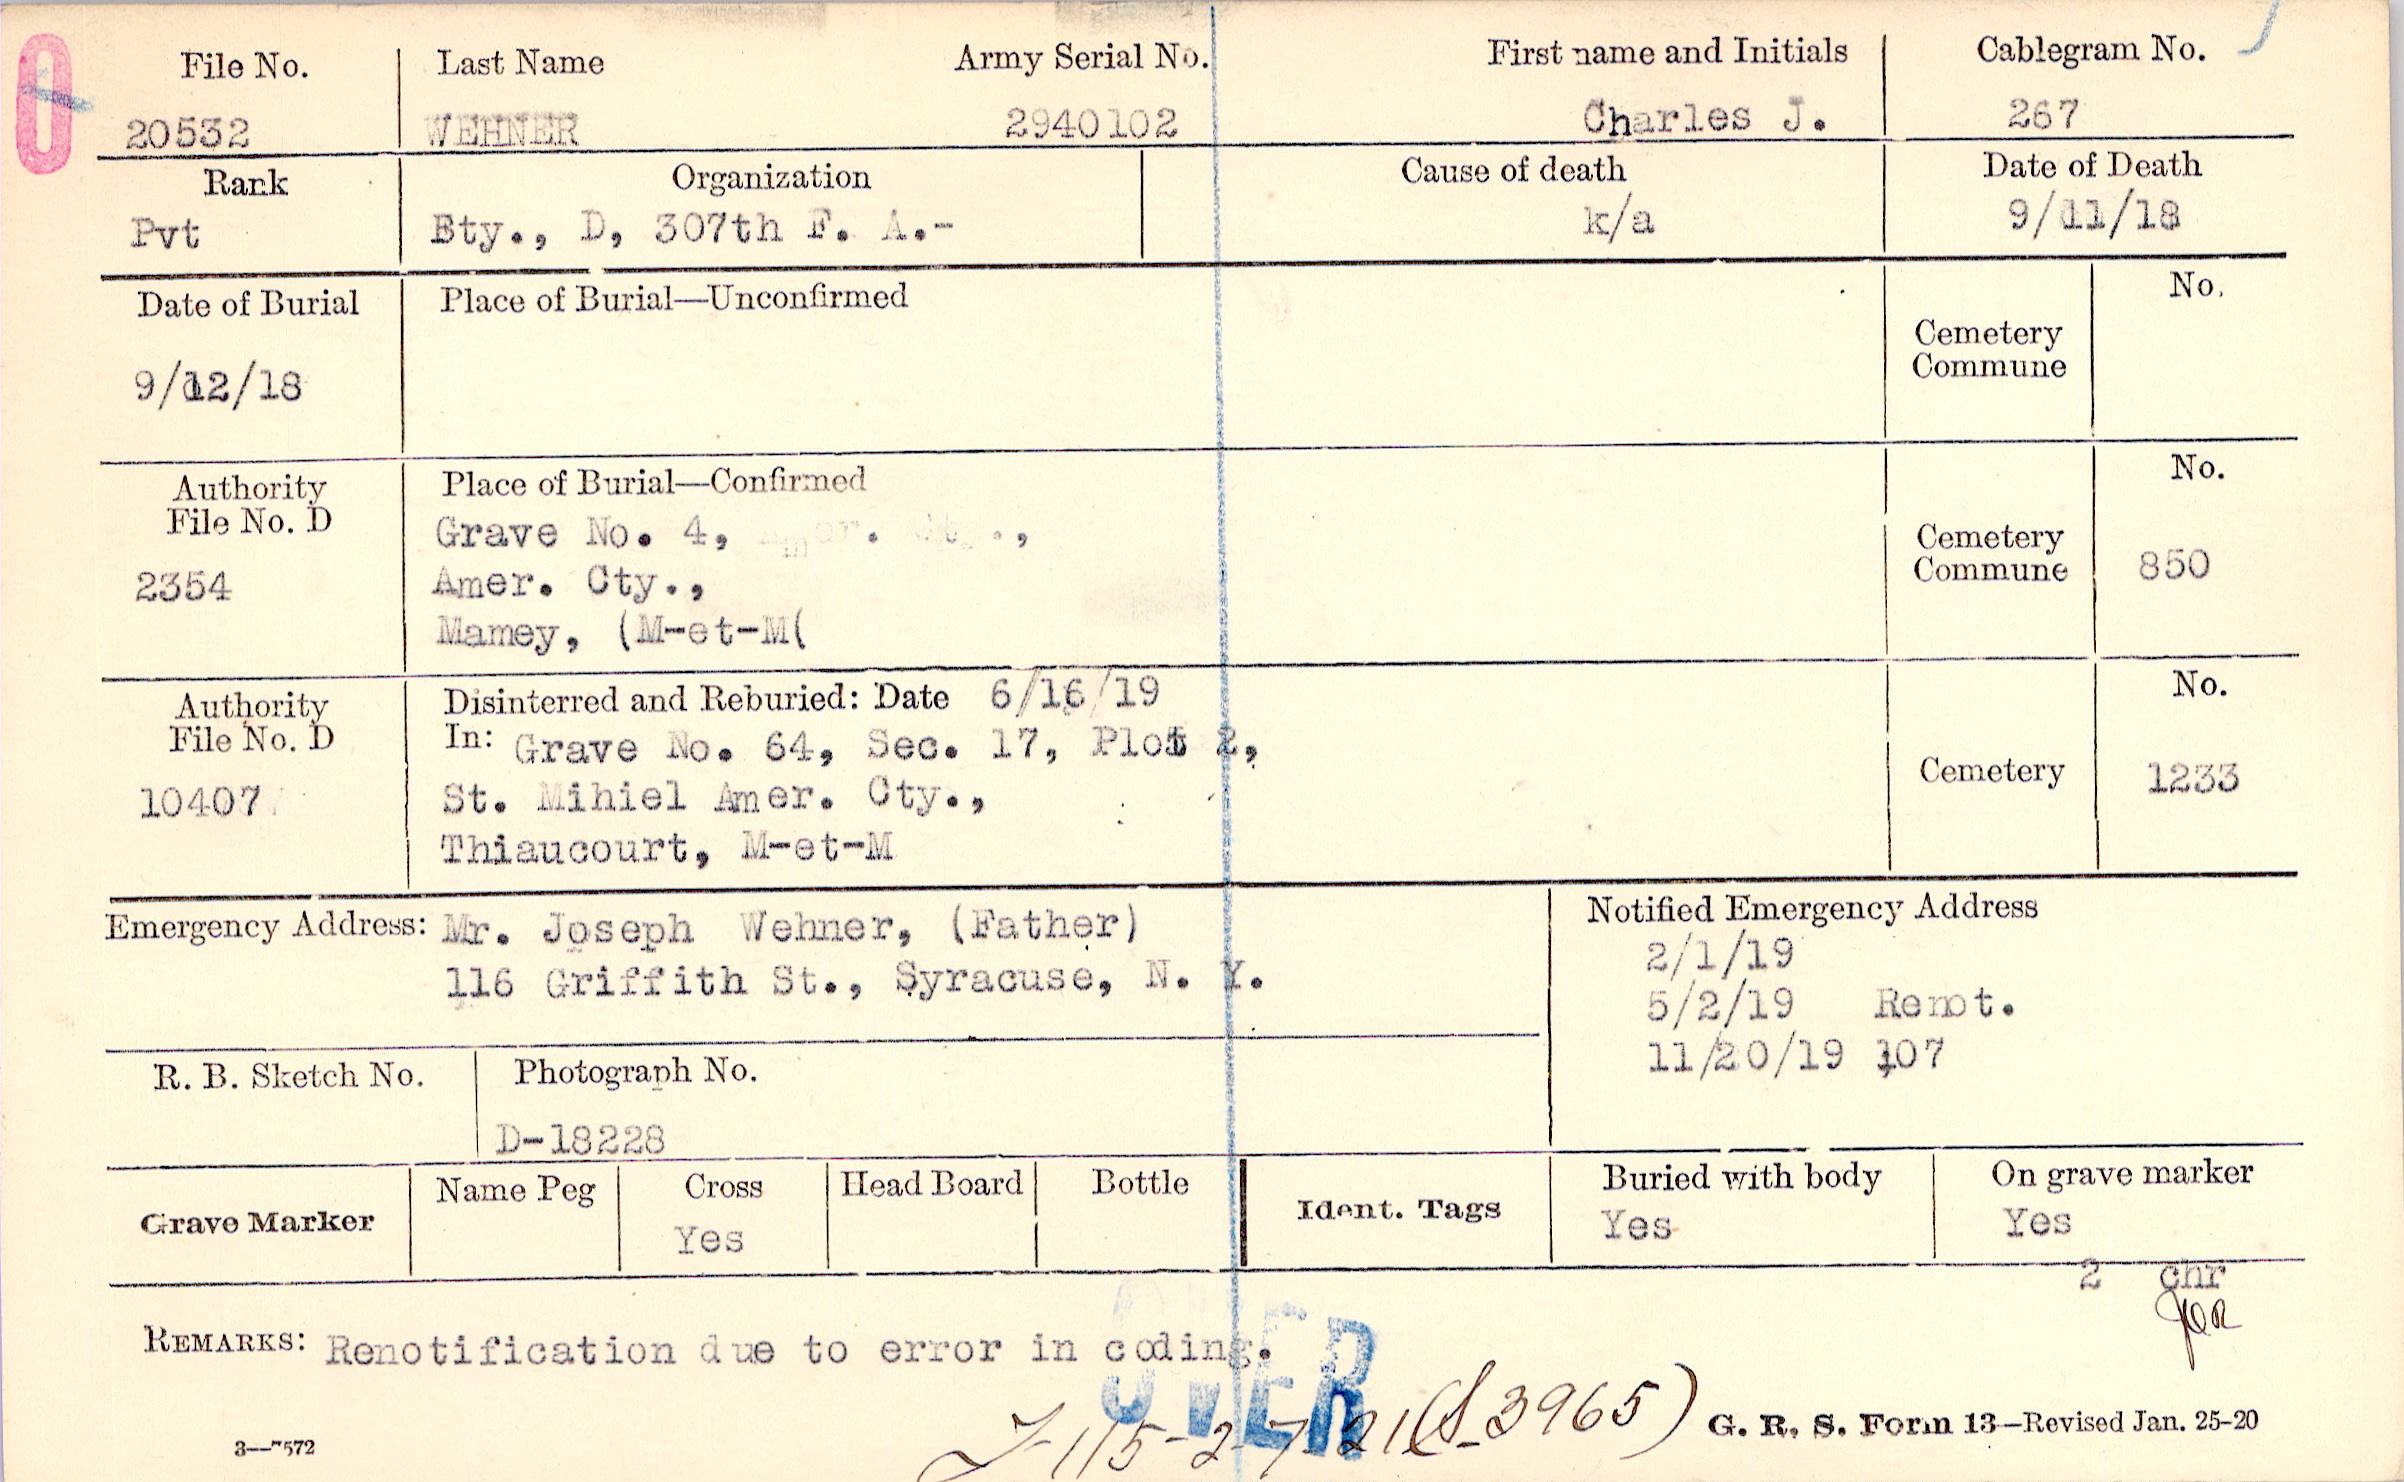 File No. Last Name Army Serial No. First name and Initials Cablegram No.
20532 WEHNER 2940102 Charles J. 267
Rank Organization Cause of death Date of Death
Pvt Bty., D, 307th F. A.- k/a 9/11/18
Date of Burial Place of Burial—Unconfirmed No.
Cemetery
Commune
9/12/18
Authority Place of Burial—Confirmed No.
File No. D Grave No. 4, Cemetery
2354 Amer. Cty., Commune 850
Mamey, (M-et-M(
Authority Disinterred and Reburied: Date 6/16/19 No.
File No. D In: Grave No. 64, Sec. 17, Plot 2, Cemetery
10407 St. Mihiel Amer. Cty., 1233
Thiaucourt, M-et-M
Emergency Address: Mr. Joseph Wehner, (Father) Notified Emergency Address
116 Griffith St., Syracuse, N. Y. 2/1/19
5/2/19 Renot.
11/20/19 107
R. B. Sketch No. Photograph No.
D-18228
Grave Marker Name Peg Cross Head Board Bottle Ident. Tags Buried with body On grave marker
Yes Yes Yes
2 chr
REMARKS: Renotification due to error in coding.
OVER
(S-3965)
3—7572 G. R. S. Form 13—Revised Jan. 25-20